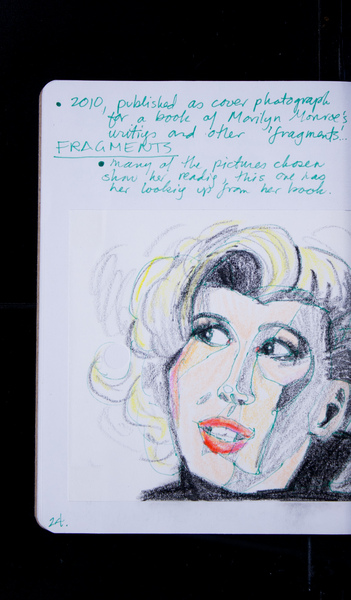 • 2010, published as cover photograph
for a book of Marilyn Monroe's
writigs and other 'fragments...
FRAGMENTS
• many of the pictures chosen
show her readig, this one has
her looking up from her book.
24.